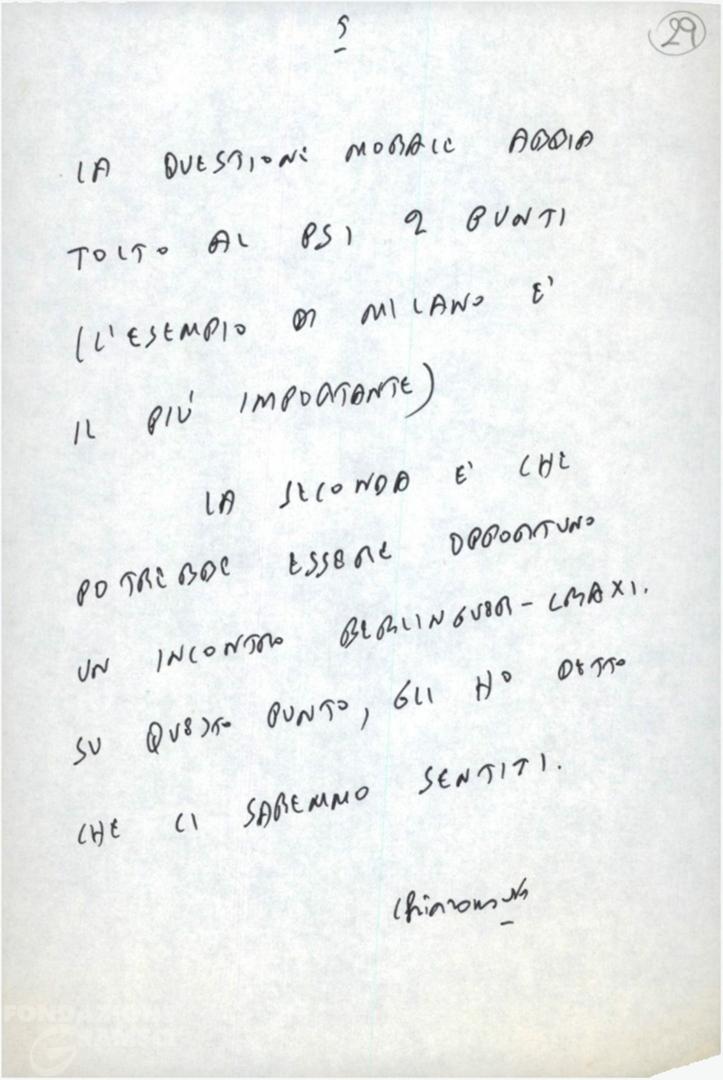 5
29
LA QUESTIONE MORALE ABBIA
TOLTO AL PSI 2 PUNTI
(L'ESEMPIO DI MILANO E'
IL PIU' IMPORTANTE)
LA SECONDA E' CHE
POTREBBE ESSERE OPPORTUNO
UN INCONTRO BERLINGUER - CRAXI.
SU QUESTO PUNTO, GLI HO DETTO
CHE CI SAREMMO SENTITI.
Chiaromonte
FONDAZIONE
GRAMSCI